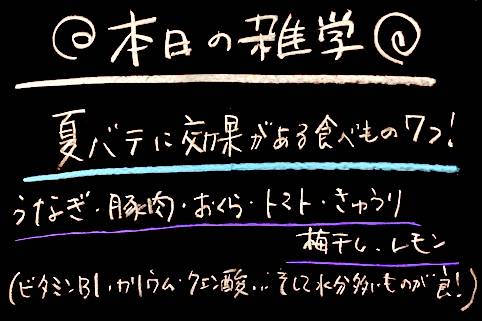 @本日の雑学@
夏バテに効果がある食べもの7つ!
うなぎ・豚肉・おくら・トマト・きゅうり
梅干し・レモン
(ビタミンB1・カリウム・クエン酸...そして水分多いものが良!)